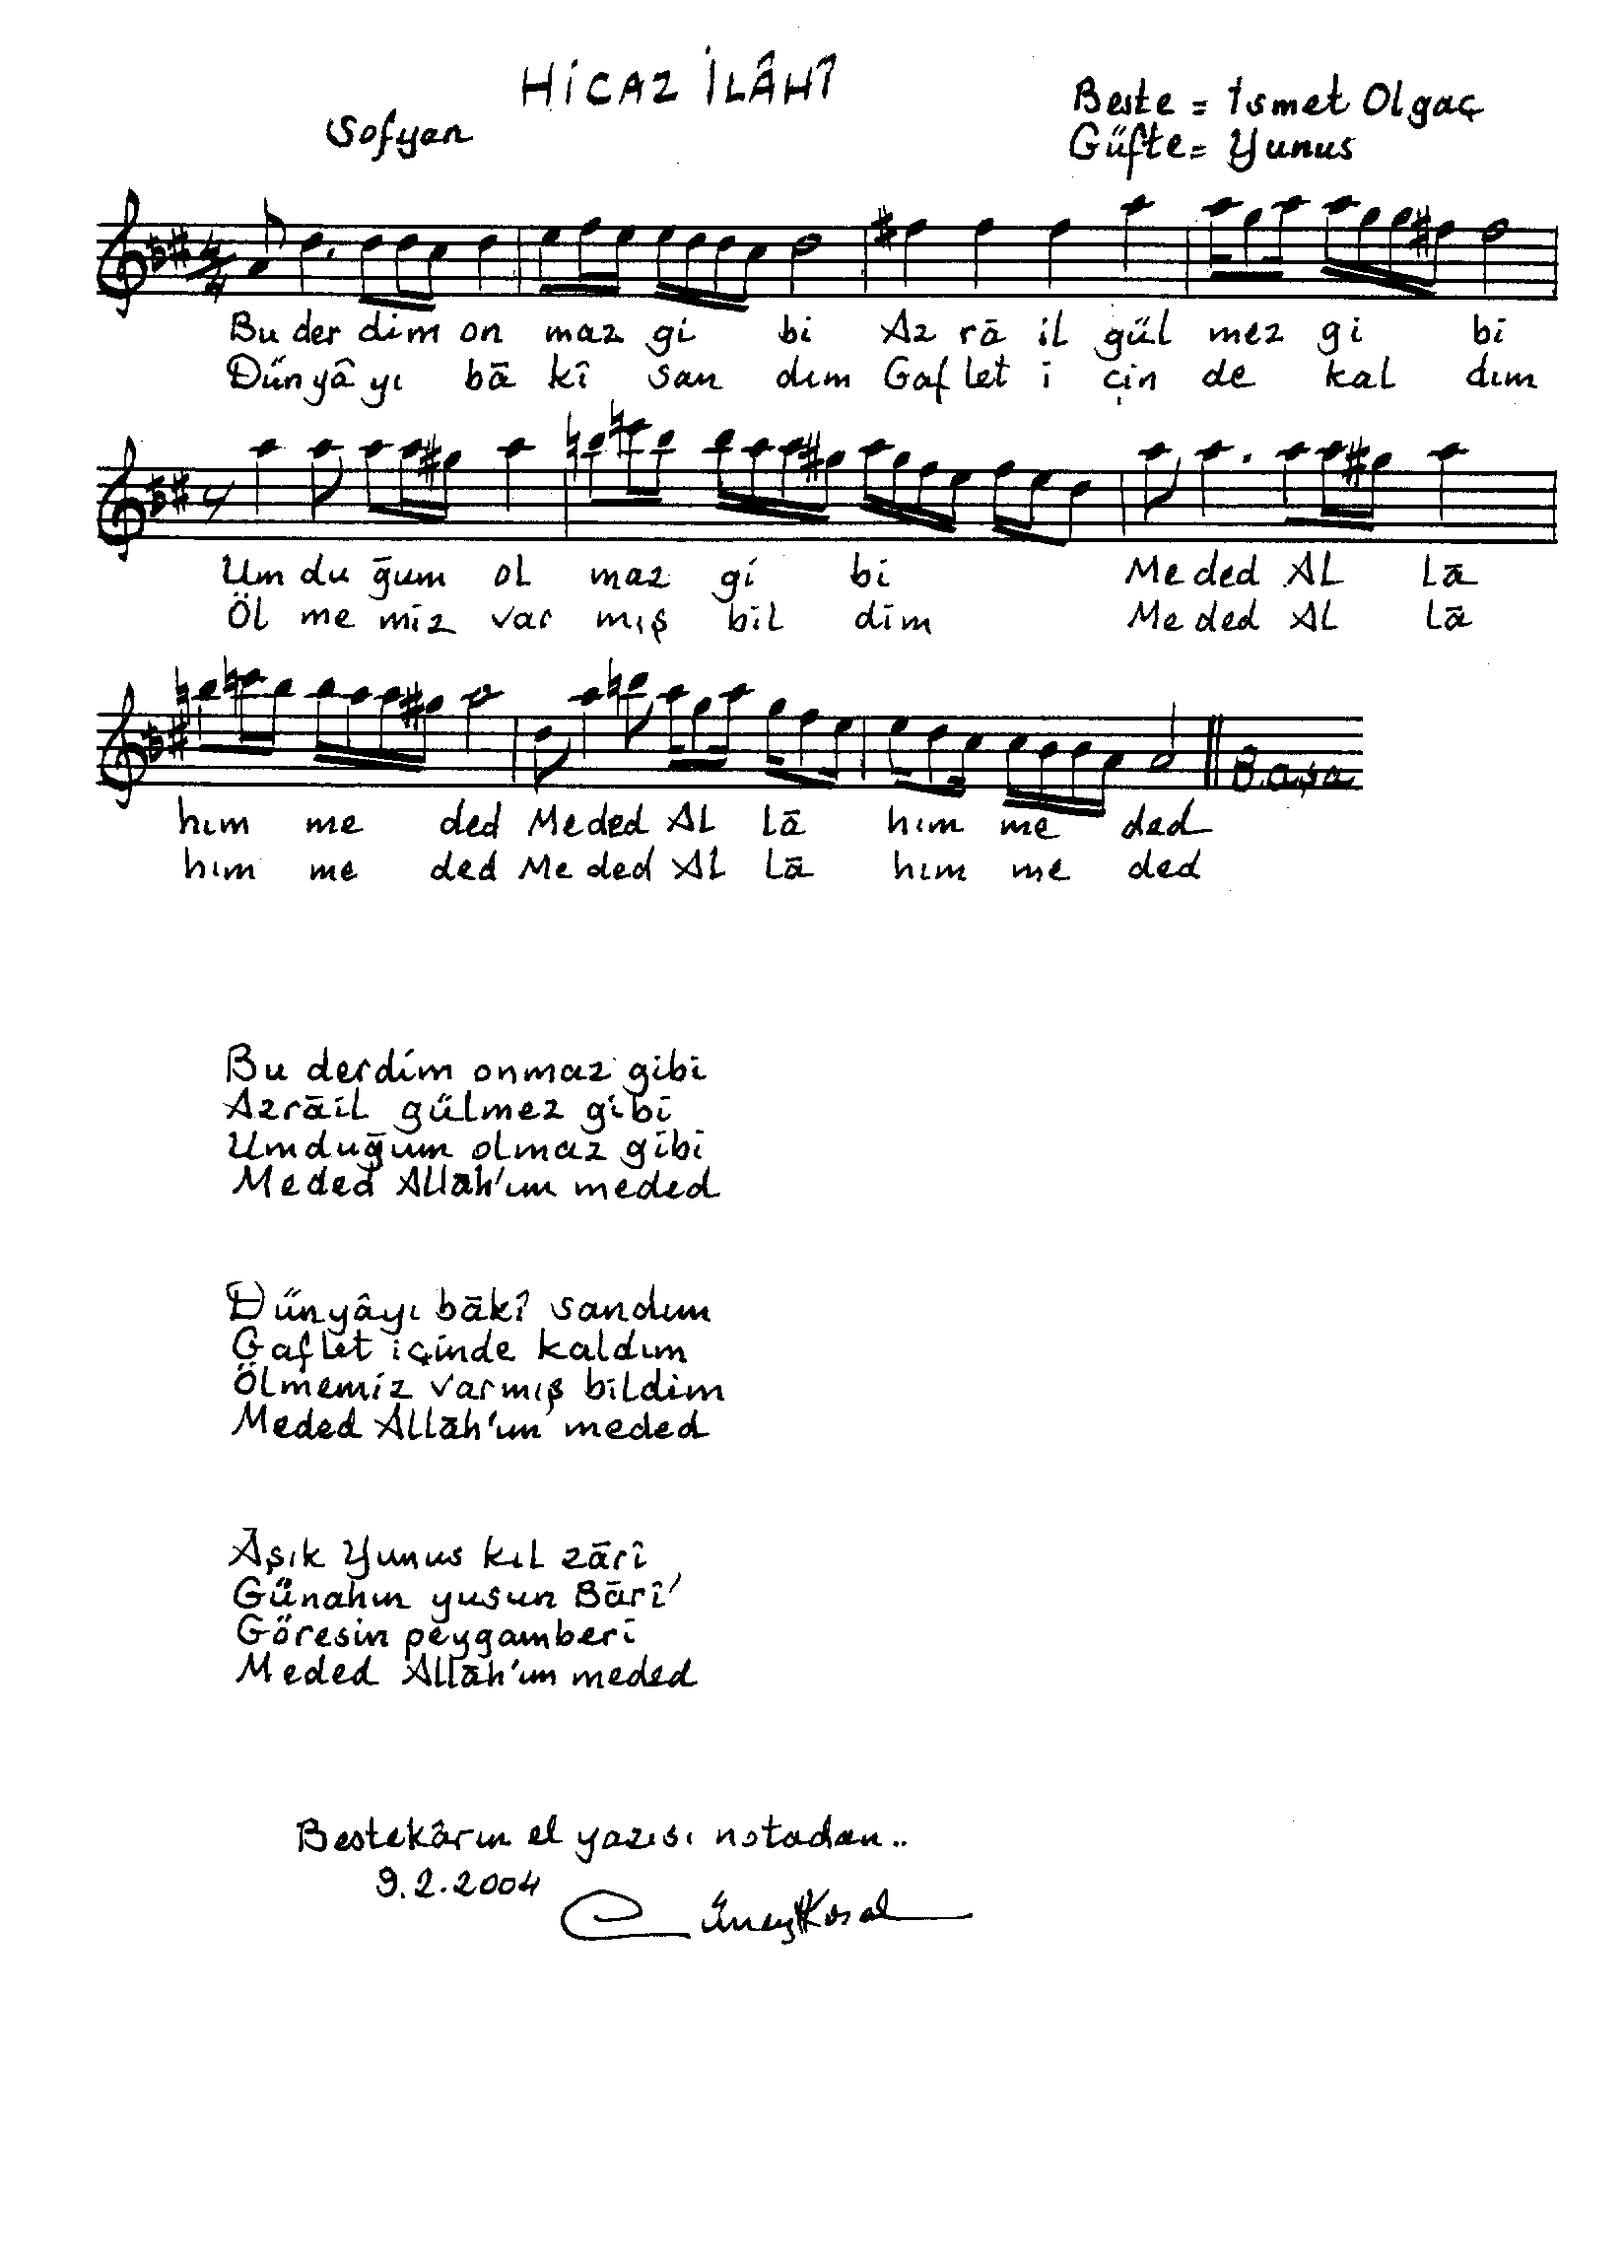 HİCAZ İLÂHÎ
Sofyan
Beste = İsmet Olgaç
Güfte = Yunus
Bu der dim on maz gi bi Az rā il gül mez gi bi
Dünyâ yı bā kî san dım Gaf let i çin de kal dım
Um du ğum ol maz gi bi Me ded AL Lā
Öl me miz var mış bil dim Me ded AL Lā
Başa
hım me ded Me ded AL lā hım me ded
hım me ded Me ded AL Lā hım me ded
Bu derdim onmaz gibi
Azrāil gülmez gibi
Umduğum olmaz gibi
Meded Allāh'ım meded
Dünyâyı bākî sandım
Gaflet içinde kaldım
Ölmemiz varmış bildim
Meded Allāh'ım meded
Āşık Yunus kıl zārî
Günahın yusun Bārî
Göresin peygamberi
Meded Allāh'ım meded
Bestekârın el yazısı notadan..
9.2.2004
Cüneyt Kosal